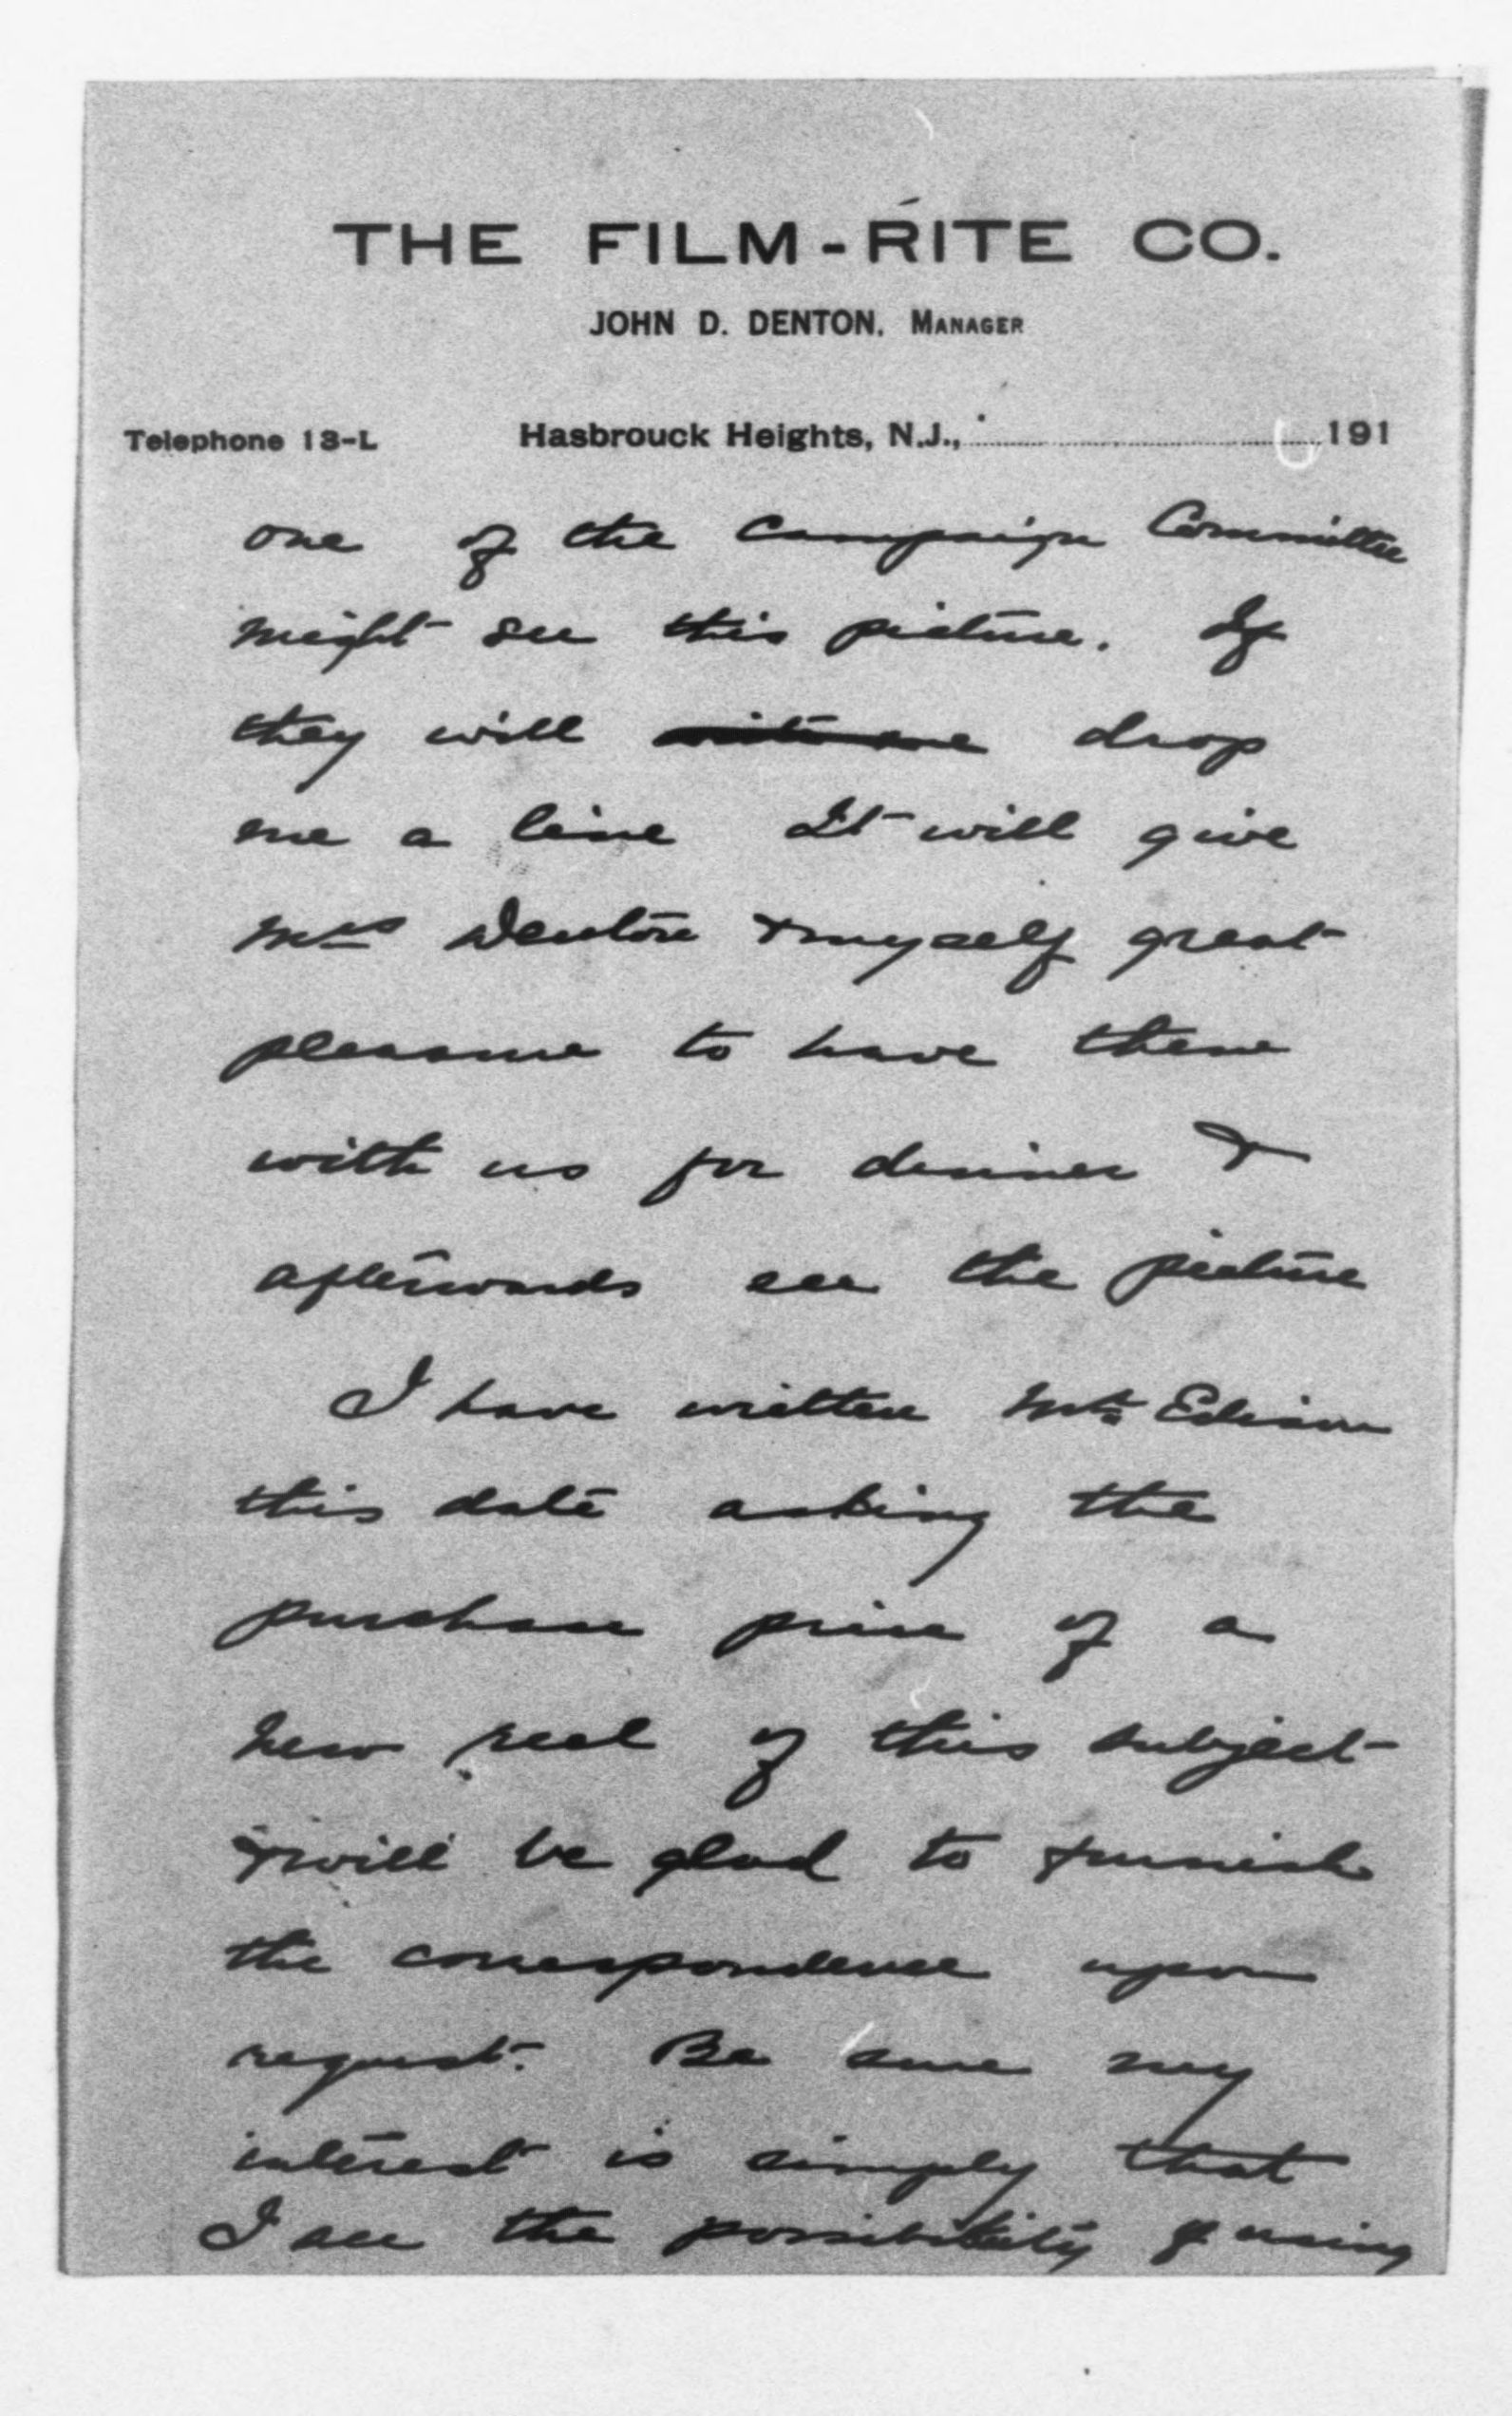 THE FILM-RITE CO.
JOHN D. DENTON, MANAGER
Telephone 13-L Hasbrouck Heights, N.J., 191
one of the Campaign Committee
might see this picture. If
they will drop
me a line It will give
Mrs Denton & myself great
pleasure to have them
with us for dinner &
afterwards see the picture
I have written Mr Edison
this date asking the
purchase price of a
new reel of this subject
& will be glad to furnish
the correspondence upon
request. Be sure my
interest is simply that
I see the possibility of using